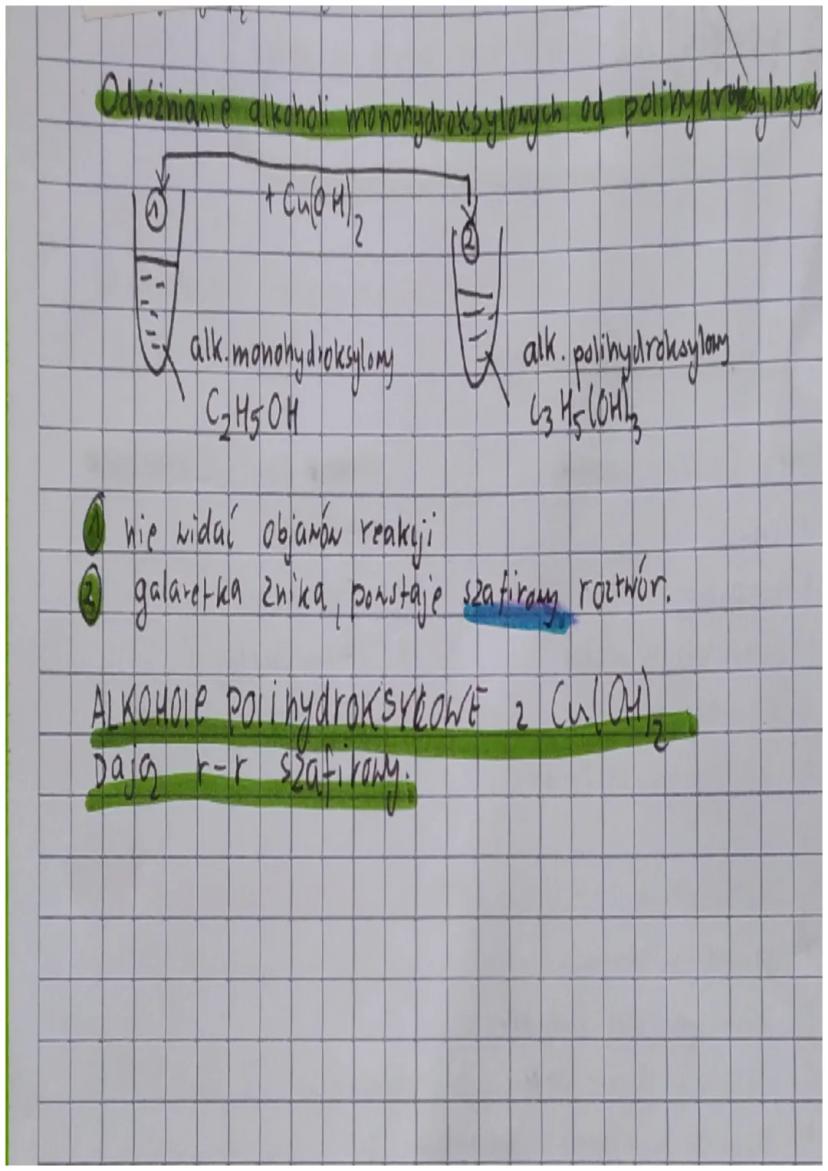 Odróżnianie alkoholi monohydroksylowych od polihydroksylowych
+ Cu(OH)₂
1
2
alk. monohydroksylowy
C₂H₅OH
alk. polihydroksylowy
C₃H₅(OH)₃
1 nie widać objawów reakcji
2 galaretka znika, powstaje szafirowy roztwór.
ALKOHOLE POLIHYDROKSYLOWE z Cu(OH)₂
Dają r-r szafirowy.